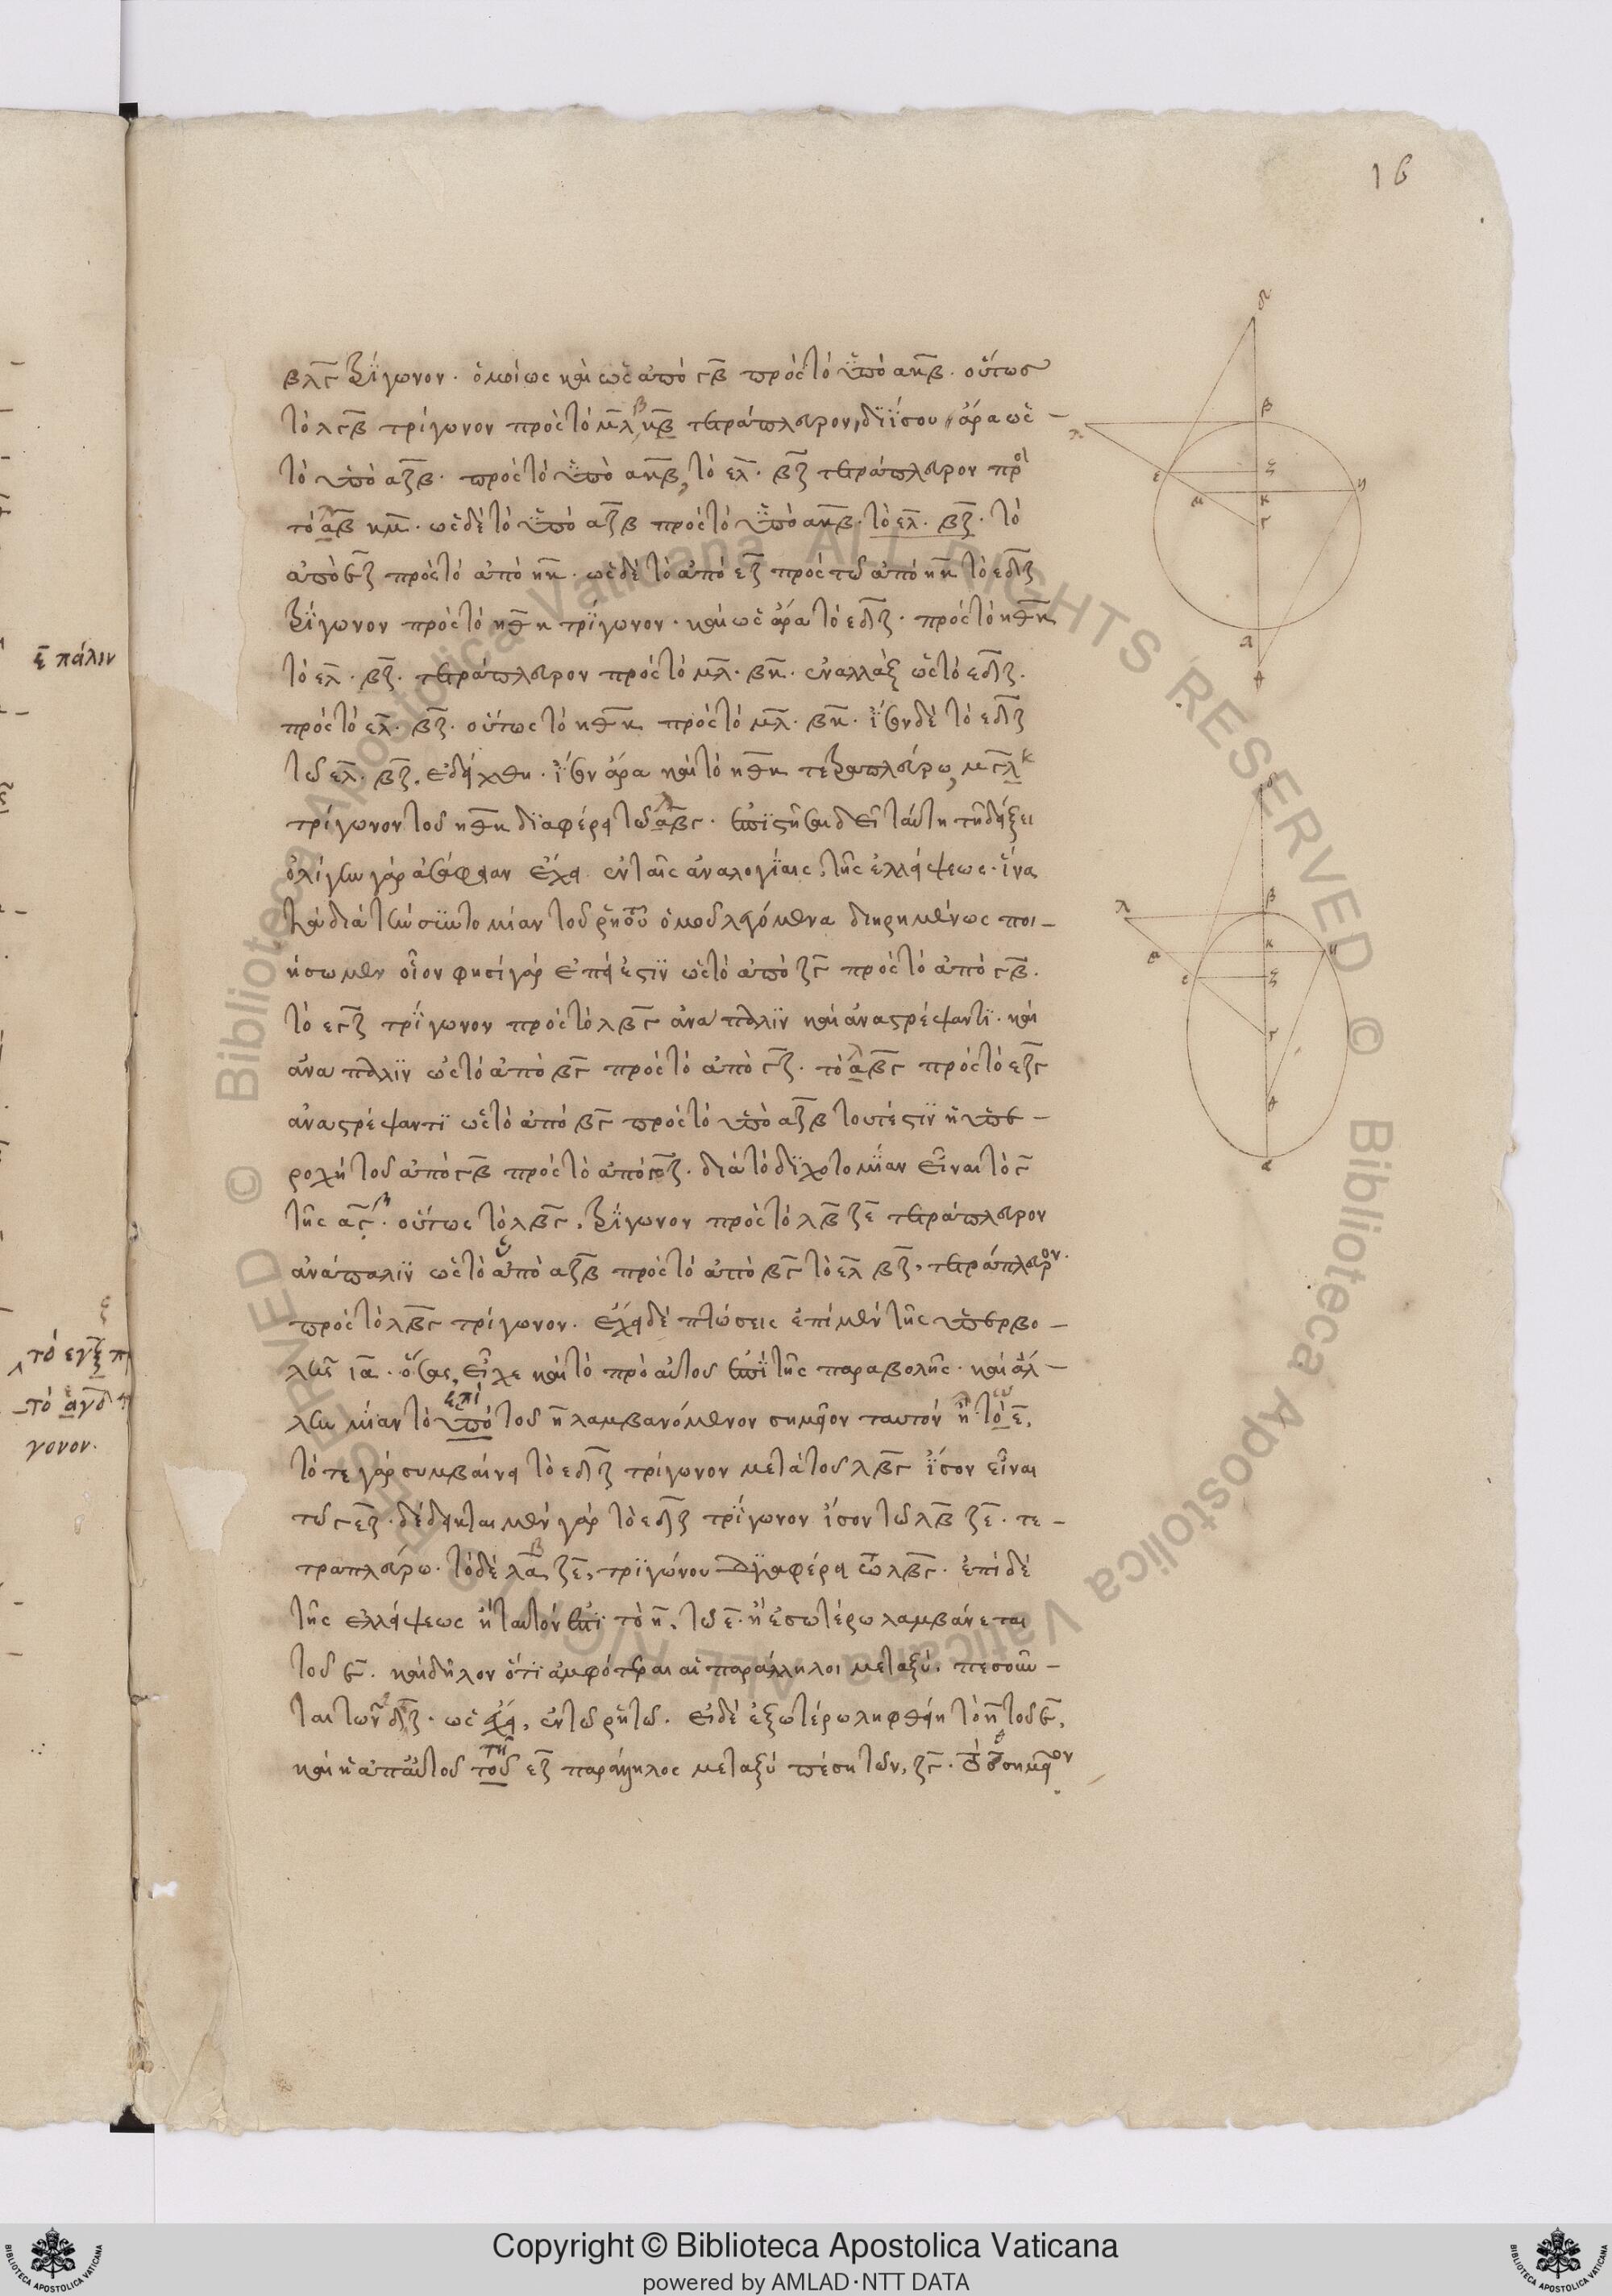 16
βλγ τρίγωνον· ὁμοίως καὶ ὡς ἀπὸ γβ πρὸς τὸ ὑπὸ ακβ· οὕτως
τὸ λγβ τρίγωνον πρὸς τὸ μλ β κβ τετράπλευρον, διΐσου ἄρα ὡς
τὸ ὑπὸ αζβ· πρὸς τὸ ὑπὸ ακβ, τὸ ελ· βζ τετράπλευρον πρὸς
τὸ αβ κμ· ὡς δὲ τὸ ὑπὸ αζβ πρὸς τὸ ὑπὸ ακβ· τὸ ελ· βζ· τὸ
ἀπὸ εζ πρὸς τὸ ἀπὸ ηκ· ὡς δὲ τὸ ἀπὸ εζ πρὸς τῶ ἀπὸ ηκ τὸ εδζ
τρίγωνον πρὸς τὸ ηθκ τρίγωνον· καὶ ὡς ἄρα τὸ εδζ· πρὸς τὸ ηθκ
τὸ ελ· βζ· τετράπλευρον πρὸς τὸ μλ· βκ· ἐναλλὰξ ὡς τὸ εδζ·
πρὸς τὸ ελ· βζ· οὕτως τὸ ηθκ πρὸς τὸ μλ· βκ· ἴσον δὲ τὸ εδζ
τῶ ελ· βζ· ἐδείχθη· ἴσον ἄρα καὶ τὸ ηθκ τετραπλεύρω, μγλκ
τρίγωνον τοῦ ηθκ διαφέρει τῶ αβγ· ἐπιστῆσαι δεῖ ταύτη τῆ δείξει
ὀλίγην γὰρ ἀσάφειαν ἔχει ἐν ταῖς ἀναλογίαις τῆς ἐλλείψεως· ἵνα
τὰ διὰ τὴν συντομίαν τοῦ ῥητοῦ ὁμοῦ λεγόμενα διηρημένως ποι–
ήσωμεν οἷον φησὶ γὰρ ἐπεί ἐστιν ὡς τὸ ἀπὸ ζγ πρὸς τὸ ἀπὸ γβ·
τὸ εγζ τρίγωνον πρὸς τὸ λβγ ἀνάπαλιν καὶ ἀναστρέψαντι· καὶ
ἀνάπαλιν ὡς τὸ ἀπὸ βγ πρὸς τὸ ἀπὸ γζ· τὸ αβγ πρὸς τὸ εζγ
ἀναστρέψαντι ὡς τὸ ἀπὸ βγ πρὸς τὸ ὑπὸ αζβ τουτέστιν ἡ ὑπε–
ροχὴ τοῦ ἀπὸ γβ πρὸς τὸ ἀπὸ γζ· διὰ τὸ διχοτομίαν εἶναι τὸ γ
τῆς αγ β· οὕτως τὸ λβγ· τρίγωνον πρὸς τὸ λβ ζε τετράπλευρον
ἀνάπαλιν ὡς τὸ ἀπὸ αζβ πρὸς τὸ ἀπὸ βγ τὸ ελ βζ, τετράπλευρον·
πρὸς τὸ λβγ τρίγωνον· ἔχει δὲ πτώσεις ἐπὶ μὲν τῆς ὑπερβο–
λῆς ια· ὅσας εἶχε καὶ τὸ πρὸ αὐτοῦ ἐπὶ τῆς παραβολῆς· καὶ ἄλ–
ἐπὶ
λην μίαν τὸ ὑπὸ τοῦ η λαμβανόμενον σημεῖον ταυτόν ἦ τὸ ε·
τότε γὰρ συμβαίνει τὸ εδζ τρίγωνον μετὰ τοῦ λβγ ἴσον εἶναι
τῶ γεζ· δέδεικται μὲν γὰρ τὸ εδζ τρίγωνον ἴσον τῶ λβ ζε· τε–
τραπλεύρω· τὸ δὲ λα β ζε, τριγώνου διαφέρει τῶ λβγ· ἐπὶ δὲ
τῆς ἐλλείψεως ἢ ταυτόν ἐστι τὸ η, τῶ ε· ἢ ἐσωτέρω λαμβάνεται
τοῦ ε· καὶ δῆλον ὅτι ἀμφότεραι αἱ παράλληλοι μεταξὺ· πεσοῦν–
ται τῶν δζ· ὡς ἔχει, ἐν τῶ ῥητῶ· εἰ δὲ ἐξωτέρω ληφθείη τὸ η τοῦ ε,
τῆ
καὶ ἡ ἀπ' αὐτοῦ τοῦ εζ παράλληλος μεταξὺ πέση τῶν, ζγ· τὸ θ σημεῖον
δ
β
λ
ε
ζ
μ
κ
η
γ
α
θ
δ
λ
β
μ
κ
η
ε
ζ
γ
θ
α
ξ πάλιν
τὸ εγξ π
τὸ αγδ
γονον·
Copyright © Biblioteca Apostolica Vaticana
powered by AMLAD·NTT DATA
© Biblioteca Apostolica Vaticana ALL RIGHTS RESERVED